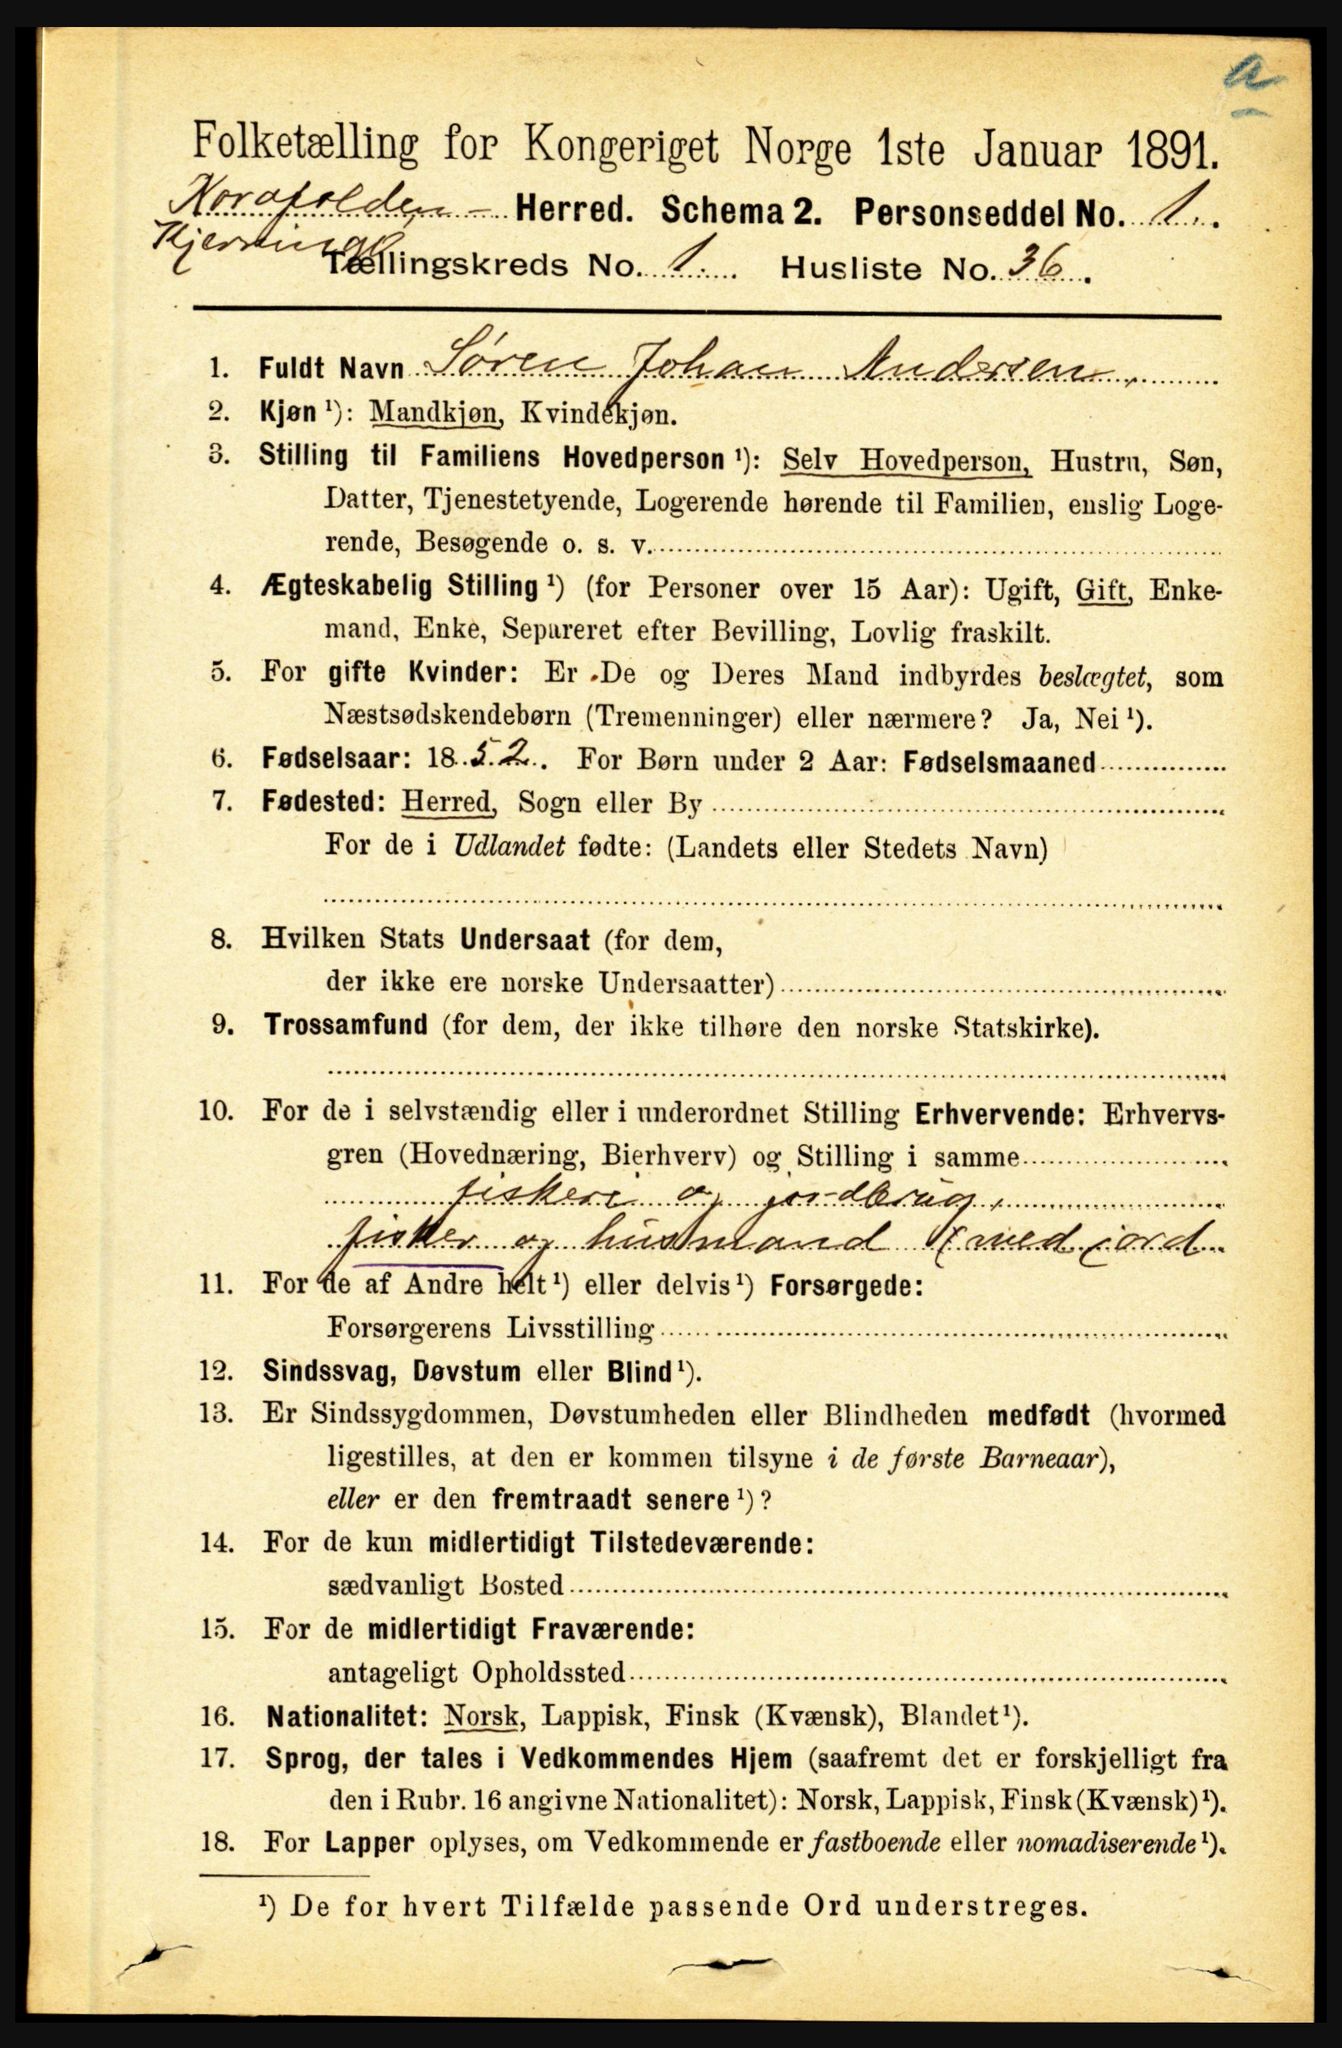 a
Folketælling for Kongeriget Norge 1ste Januar 1891.
Nordfolden- Herred. Schema 2. Personseddel No. 1.
Kjerringø
Tællingskreds No. 1. Husliste No. 36.
1. Fuldt Navn Søren Johan Andersen,
2. Kjøn ¹): Mandkjøn, Kvindekjøn.
3. Stilling til Familiens Hovedperson ¹): Selv Hovedperson, Hustru, Søn,
Datter, Tjenestetyende, Logerende hørende til Familien, enslig Loge-
rende, Besøgende o. s. v.
4. Ægteskabelig Stilling ¹) (for Personer over 15 Aar): Ugift, Gift, Enke-
mand, Enke, Separeret efter Bevilling, Lovlig fraskilt.
5. For gifte Kvinder: Er De og Deres Mand indbyrdes beslægtet, som
Næstsødskendebørn (Tremenninger) eller nærmere? Ja, Nei ¹).
6. Fødselsaar: 1852. For Børn under 2 Aar: Fødselsmaaned
7. Fødested: Herred, Sogn eller By
For de i Udlandet fødte: (Landets eller Stedets Navn)
8. Hvilken Stats Undersaat (for dem,
der ikke ere norske Undersaatter)
9. Trossamfund (for dem, der ikke tilhøre den norske Statskirke).
10. For de i selvstændig eller i underordnet Stilling Erhvervende: Erhvervs-
gren (Hovednæring, Bierhverv) og Stilling i samme
fiskeri og jordbrug,
fisker og husmand (med jord
11. For de af Andre helt ¹) eller delvis ¹) Forsørgede:
Forsørgerens Livsstilling
12. Sindssvag, Døvstum eller Blind ¹).
13. Er Sindssygdommen, Døvstumheden eller Blindheden medfødt (hvormed
ligestilles, at den er kommen tilsyne i de første Barneaar),
eller er den fremtraadt senere ¹)?
14. For de kun midlertidigt Tilstedeværende:
sædvanligt Bosted
15. For de midlertidigt Fraværende:
antageligt Opholdssted
16. Nationalitet: Norsk, Lappisk, Finsk (Kvænsk), Blandet ¹).
17. Sprog, der tales i Vedkommendes Hjem (saafremt det er forskjelligt fra
den i Rubr. 16 angivne Nationalitet): Norsk, Lappisk, Finsk (Kvænsk) ¹).
18. For Lapper oplyses, om Vedkommende er fastboende eller nomadiserende ¹).
¹) De for hvert Tilfælde passende Ord understreges.